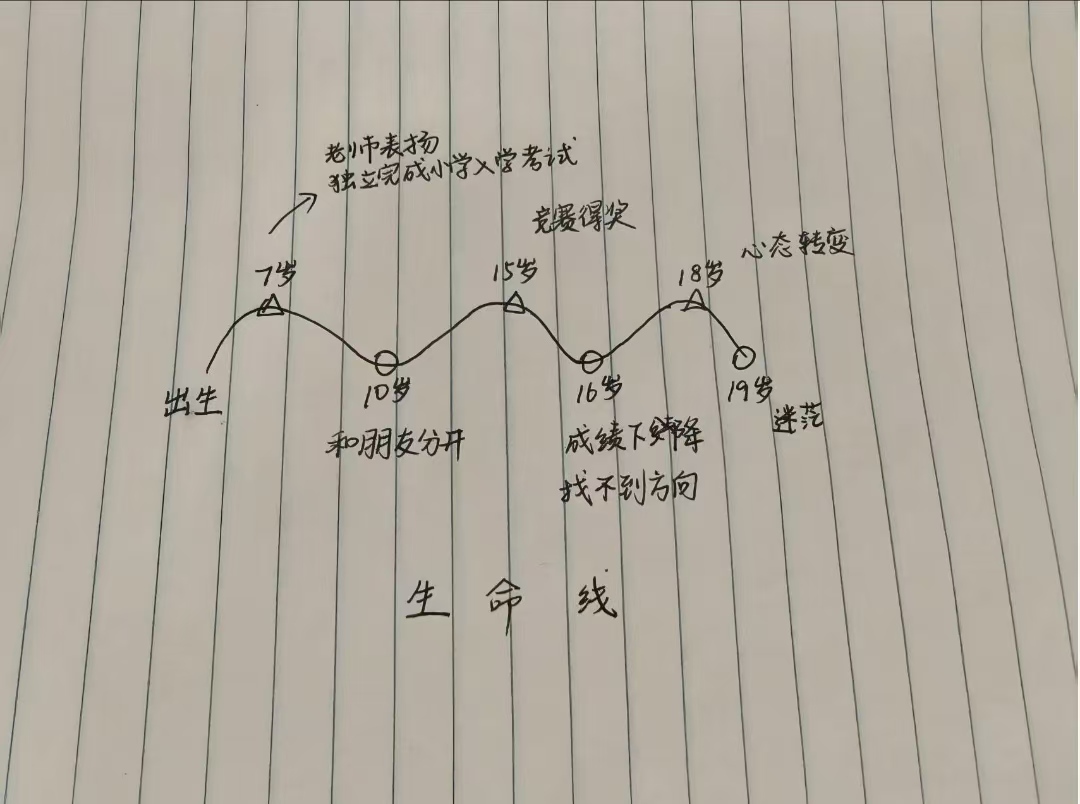 老师表扬
独立完成小学入学考试
竞赛得奖
心态转变
7岁
15岁
18岁
出生
10岁
16岁
19岁
迷茫
和朋友分开
成绩下降
找不到方向
生命线